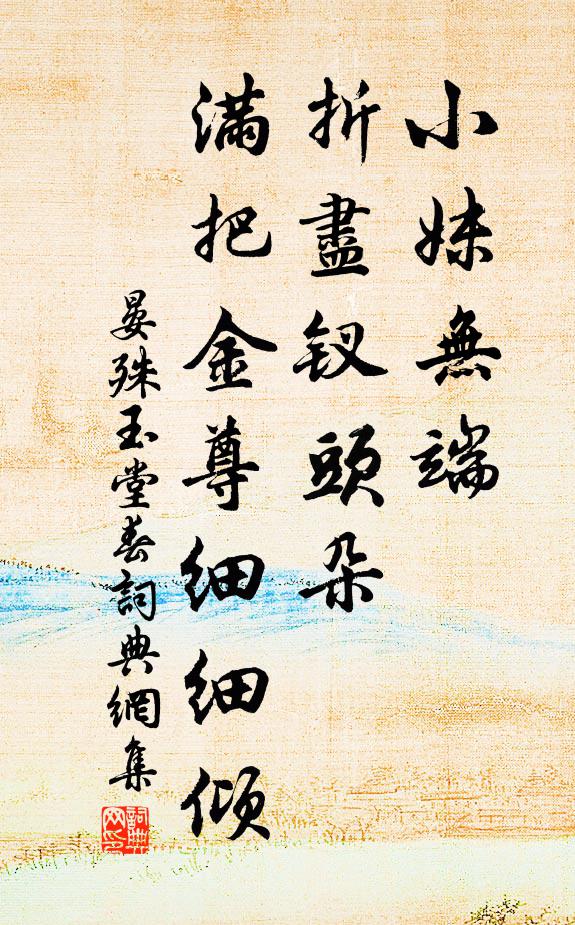 小妹無端
折盡釵頭朵
滿把金尊細細傾
晏殊玉堂春詞典網集
詞典网印